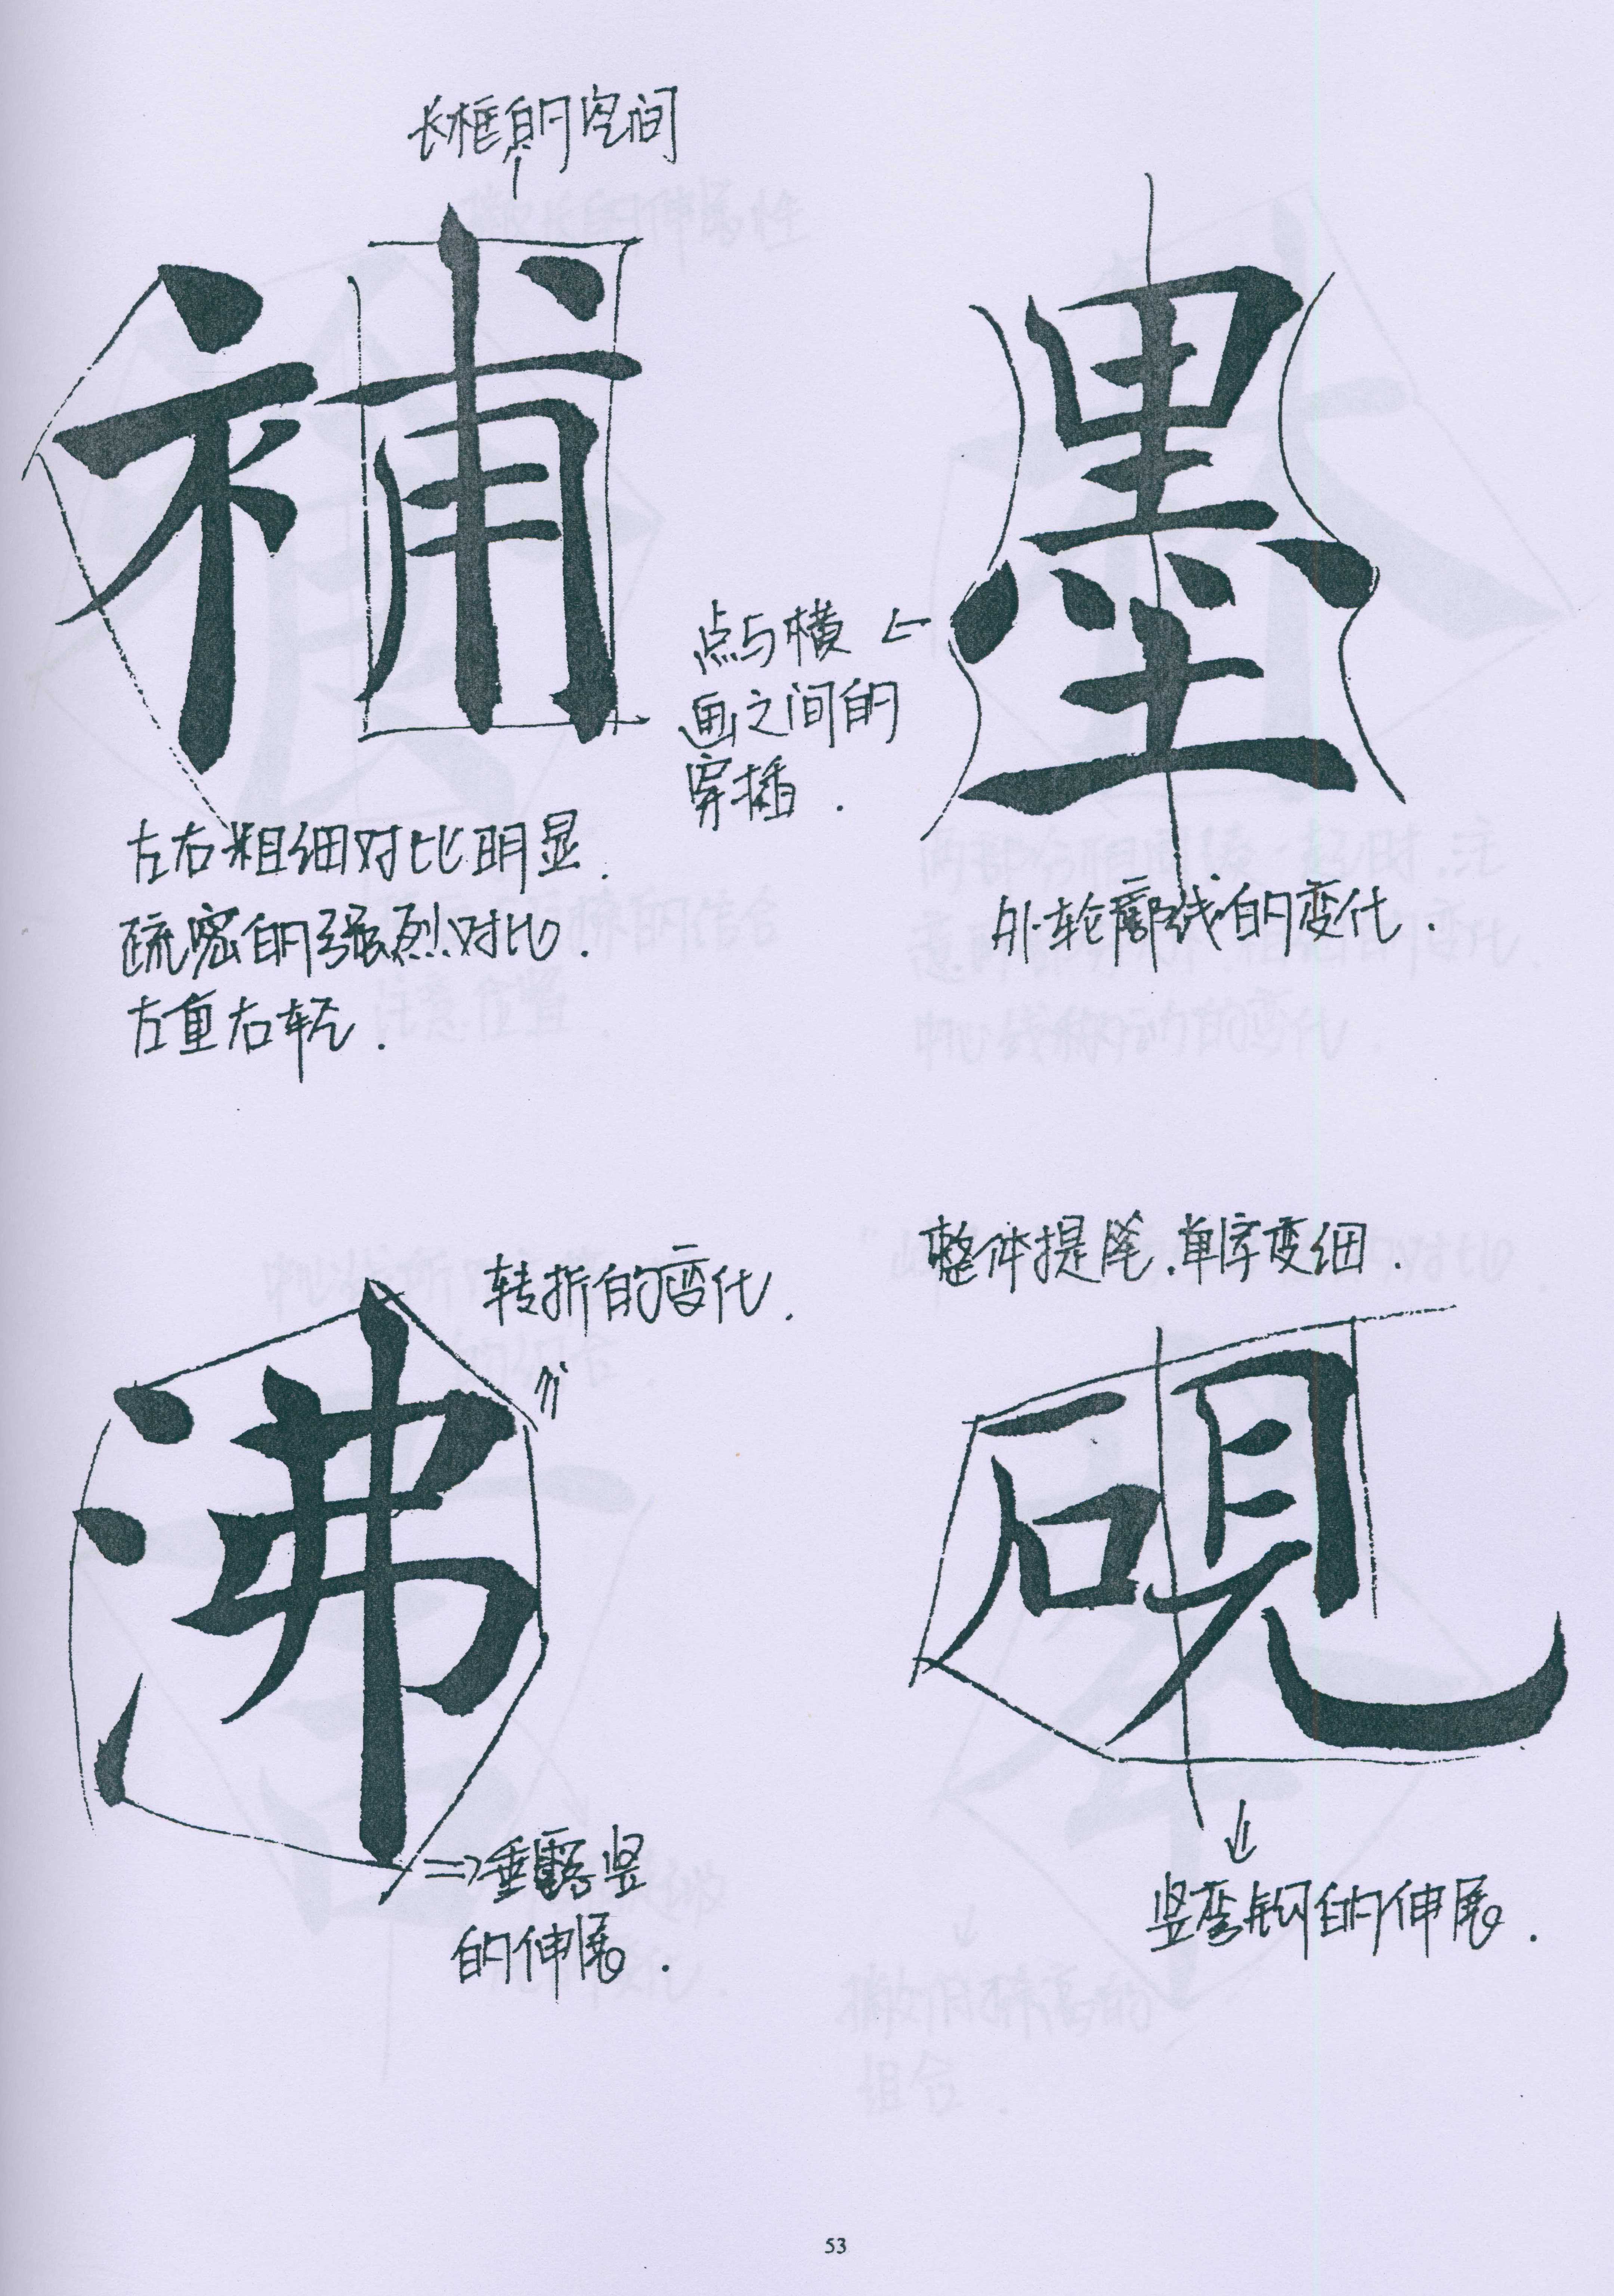 长框的空间
補
墨
点与横
画之间的
穿插.
左右粗细对比明显.
疏密的强烈对比.
左重右轻.
外轮廓线的变化.
转折的变化.
整体提笔.单字变细.
沸
硯
垂露竖
的伸展.
竖弯钩的伸展.
53